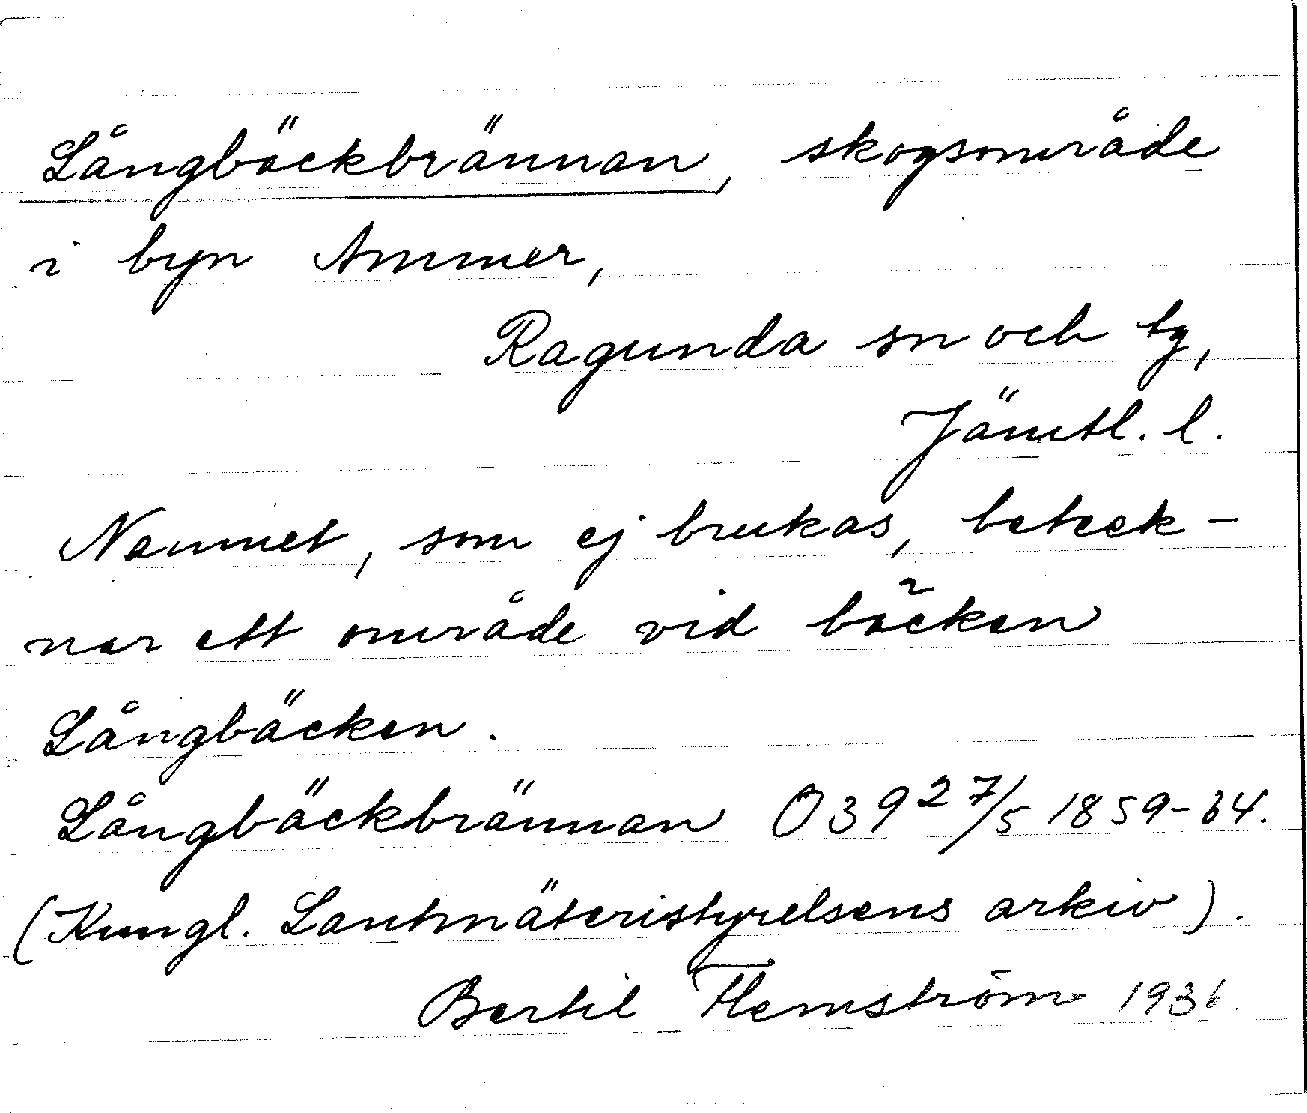 Långbäckbrännan, skogsområde
i byn Ammer,
Ragunda sn och tg,
Jämtl. l.
Namnet, som ej brukas, beteck-
nar ett område vid bäcken
Långbäcken.
Långbäckbrännan O 39 27/5 1859-64.
(Kungl. Lantmäteristyrelsens arkiv).
Bertil Flemström 1936.